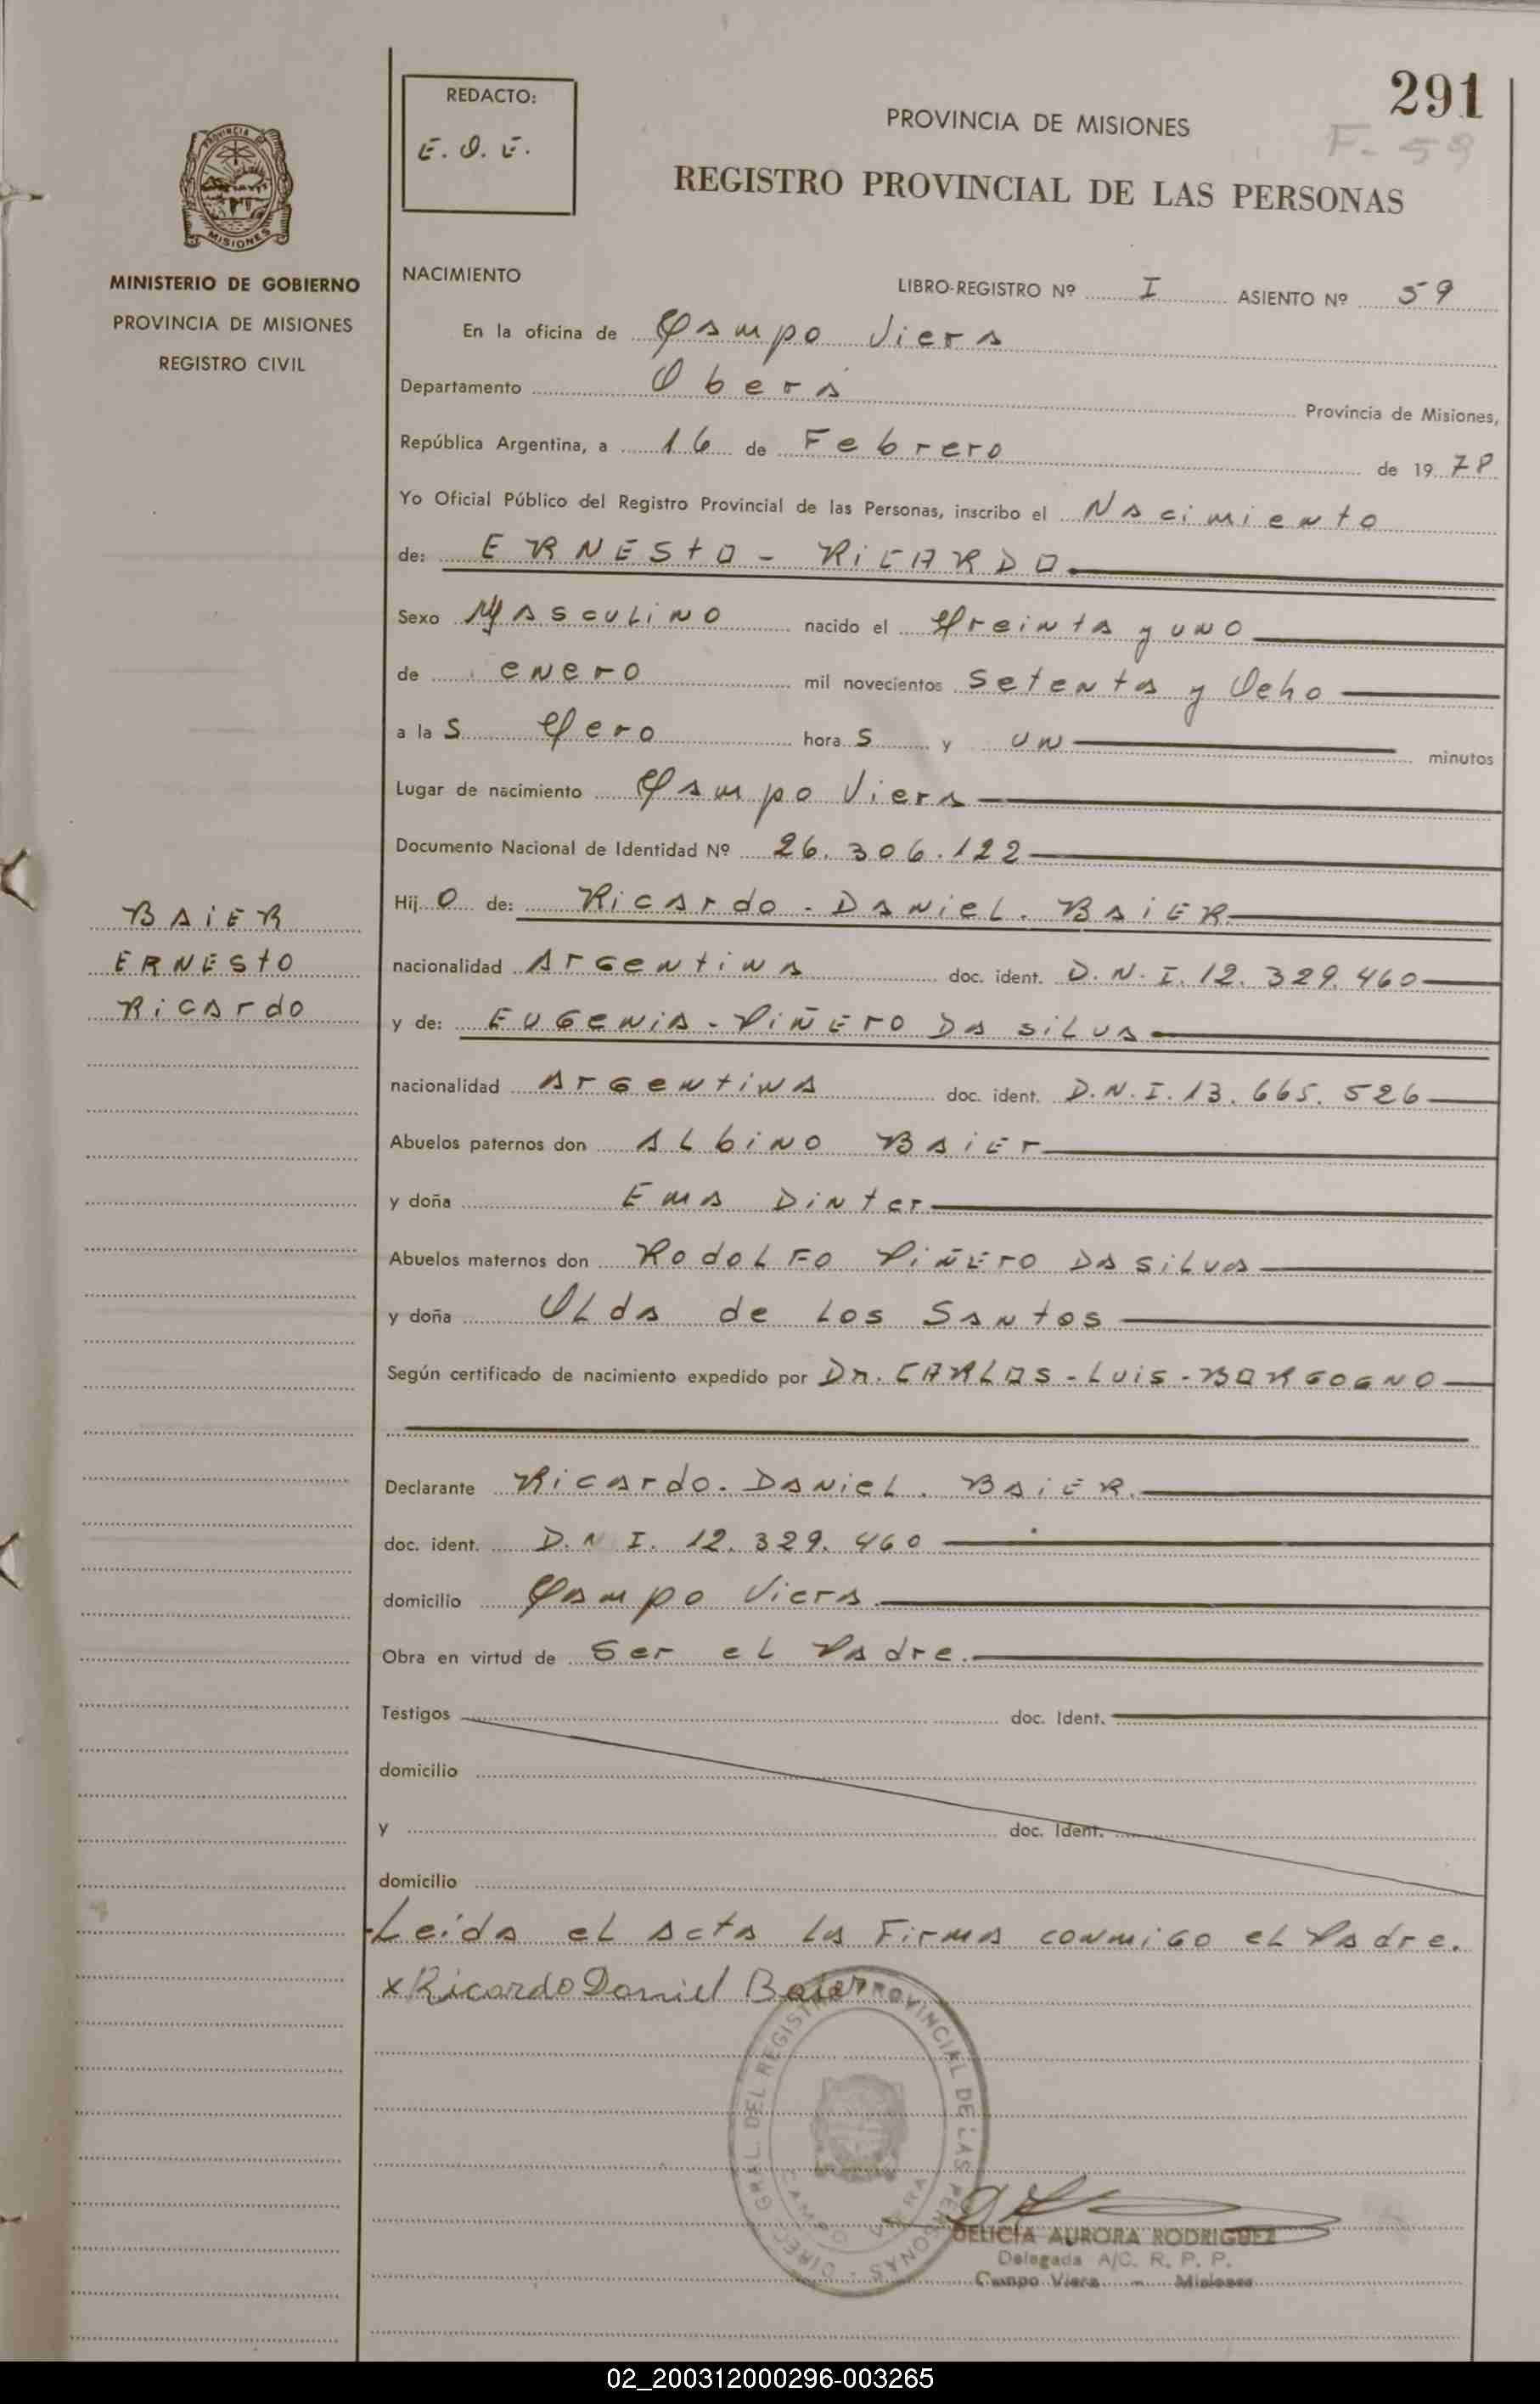 291
F-59
REDACTO:
E. O. E.
PROVINCIA DE MISIONES
REGISTRO PROVINCIAL DE LAS PERSONAS
PROVINCIA DE
MISIONES
MINISTERIO DE GOBIERNO
PROVINCIA DE MISIONES
REGISTRO CIVIL
NACIMIENTO
LIBRO-REGISTRO Nº I ASIENTO Nº 59
En la oficina de Campo Viera
Departamento Obera Provincia de Misiones,
República Argentina, a 16 de Febrero de 1978
Yo Oficial Público del Registro Provincial de las Personas, inscribo el Nacimiento
de: ERNESTO - RICARDO
Sexo Masculino nacido el Treinta y uno
de enero mil novecientos Setenta y Ocho
a la s Cero hora s y un minutos
Lugar de nacimiento Campo Viera
Documento Nacional de Identidad Nº 26.306.122
Hij o de: Ricardo - Daniel. BAIER
BAIER
ERNESTO
Ricardo
nacionalidad Argentina doc. ident. D.N.I. 12.329.460
y de: EUGENIA - PIÑERO DA SILVA
nacionalidad Argentina doc. ident. D.N.I. 13.665.526
Abuelos paternos don ALbino BAIEr
y doña Ema Dinter
Abuelos maternos don RodoLFo PIÑERO DA SILVA
y doña OLda de Los Santos
Según certificado de nacimiento expedido por Dr. CARLOS - LUIS - BORGOGNO
Declarante Ricardo. Daniel. BAIER.
doc. ident. D.N I. 12.329.460
domicilio Campo Viera
Obra en virtud de Ser el Padre.
Testigos doc. Ident.
domicilio
y doc. Ident.
domicilio
Leida el acta la Firma conmigo el Padre.
x Ricardo Daniel Baier
DIREC. GRAL DEL REGISTRO PROVINCIAL DE LAS PERSONAS -
CAMPO VIERA
DELICIA AURORA RODRIGUEZ
Delegada A/C. R. P. P.
Campo Viera - Misiones
02_200312000296-003265